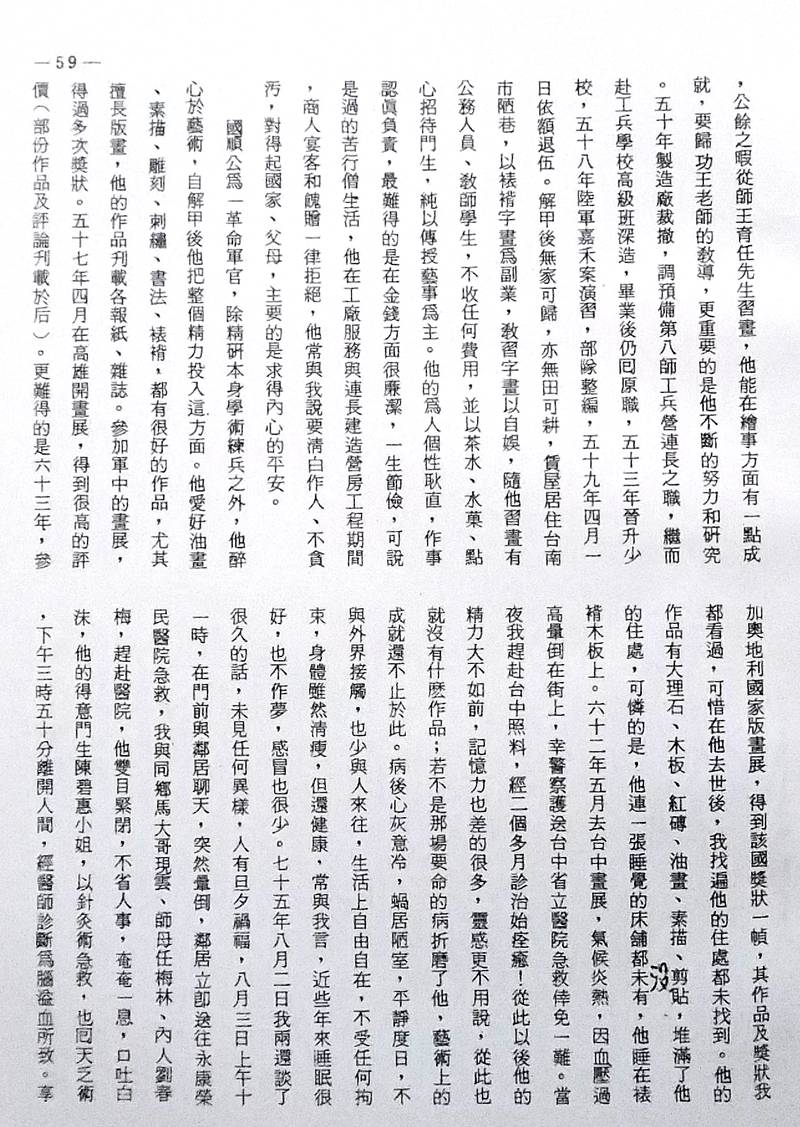 —59—
，公餘之暇從師王育任先生習畫，他能在繪事方面有一點成
就，要歸功王老師的教導，更重要的是他不斷的努力和研究
。五十年製造廠裁撤，調預備第八師工兵營連長之職，繼而
赴工兵學校高級班深造，畢業後仍回原職，五十三年晉升少
校，五十八年陸軍嘉禾案演習，部隊整編，五十九年四月一
日依額退伍。解甲後無家可歸，亦無田可耕，賃屋居住台南
市陋巷，以裱褙字畫為副業，教習字畫以自娛，隨他習畫有
公務人員、教師學生，不收任何費用，並以茶水、水菓、點
心招待門生，純以傳授藝事為主。他的為人個性耿直，作事
認真負責，最難得的是在金錢方面很廉潔，一生節儉，可說
是過的苦行僧生活，他在工廠服務與連長建造營房工程期間
，商人宴客和餽贈一律拒絕，他常與我說要清白作人、不貪
污，對得起國家、父母，主要的是求得內心的平安。
國順公為一革命軍官，除精研本身學術練兵之外，他醉
心於藝術，自解甲後他把整個精力投入這方面。他愛好油畫
、素描、雕刻、刺繡、書法、裱褙，都有很好的作品，尤其
擅長版畫，他的作品刊載各報紙、雜誌。參加軍中的畫展，
得過多次獎狀。五十七年四月在高雄開畫展，得到很高的評
價（部份作品及評論刊載於后）。更難得的是六十三年，參
加奧地利國家版畫展，得到該國獎狀一幀，其作品及獎狀我
都看過，可惜在他去世後，我找遍他的住處都未找到。他的
作品有大理石、木板、紅磚、油畫、素描、剪貼，堆滿了他
的住處，可憐的是，他連一張睡覺的床舖都未沒有，他睡在裱
褙木板上。六十二年五月去台中畫展，氣候炎熱，因血壓過
高暈倒在街上，幸警察護送台中省立醫院急救倖免一難。當
夜我趕赴台中照料，經二個多月診治始痊癒！從此以後他的
精力大不如前，記憶力也差的很多，靈感更不用說，從此也
就沒有什麼作品；若不是那場要命的病折磨了他，藝術上的
成就還不止於此。病後心灰意冷，蝸居陋室，平靜度日，不
與外界接觸，也少與人來往，生活上自由自在，不受任何拘
束，身體雖然清瘦，但還健康，常與我言，近些年來睡眠很
好，也不作夢，感冒也很少。七十五年八月二日我兩還談了
很久的話，未見任何異樣，人有旦夕禍福，八月三日上午十
一時，在門前與鄰居聊天，突然暈倒，鄰居立卽送往永康榮
民醫院急救，我與同鄉馬大哥現雲、師母任梅林、內人劉春
梅，趕赴醫院，他雙目緊閉，不省人事，奄奄一息，口吐白
沫，他的得意門生陳碧惠小姐，以針灸術急救，也回天乏術
，下午三時五十分離開人間，經醫師診斷為腦溢血所致。享